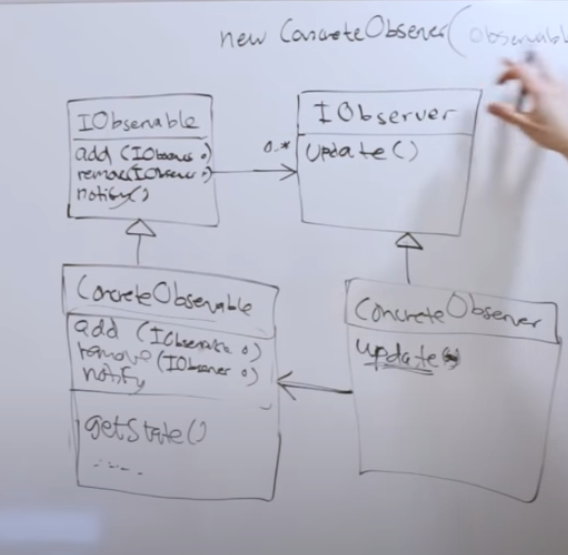 new ConcreteObserver(observabl
IObservable
add (IObserver o)
remove(IObserver o)
notify()
0..*
IObserver
update()
ConcreteObservable
add (IObserver o)
remove (IObserver o)
notify
getState()
.....
ConcreteObserver
update()